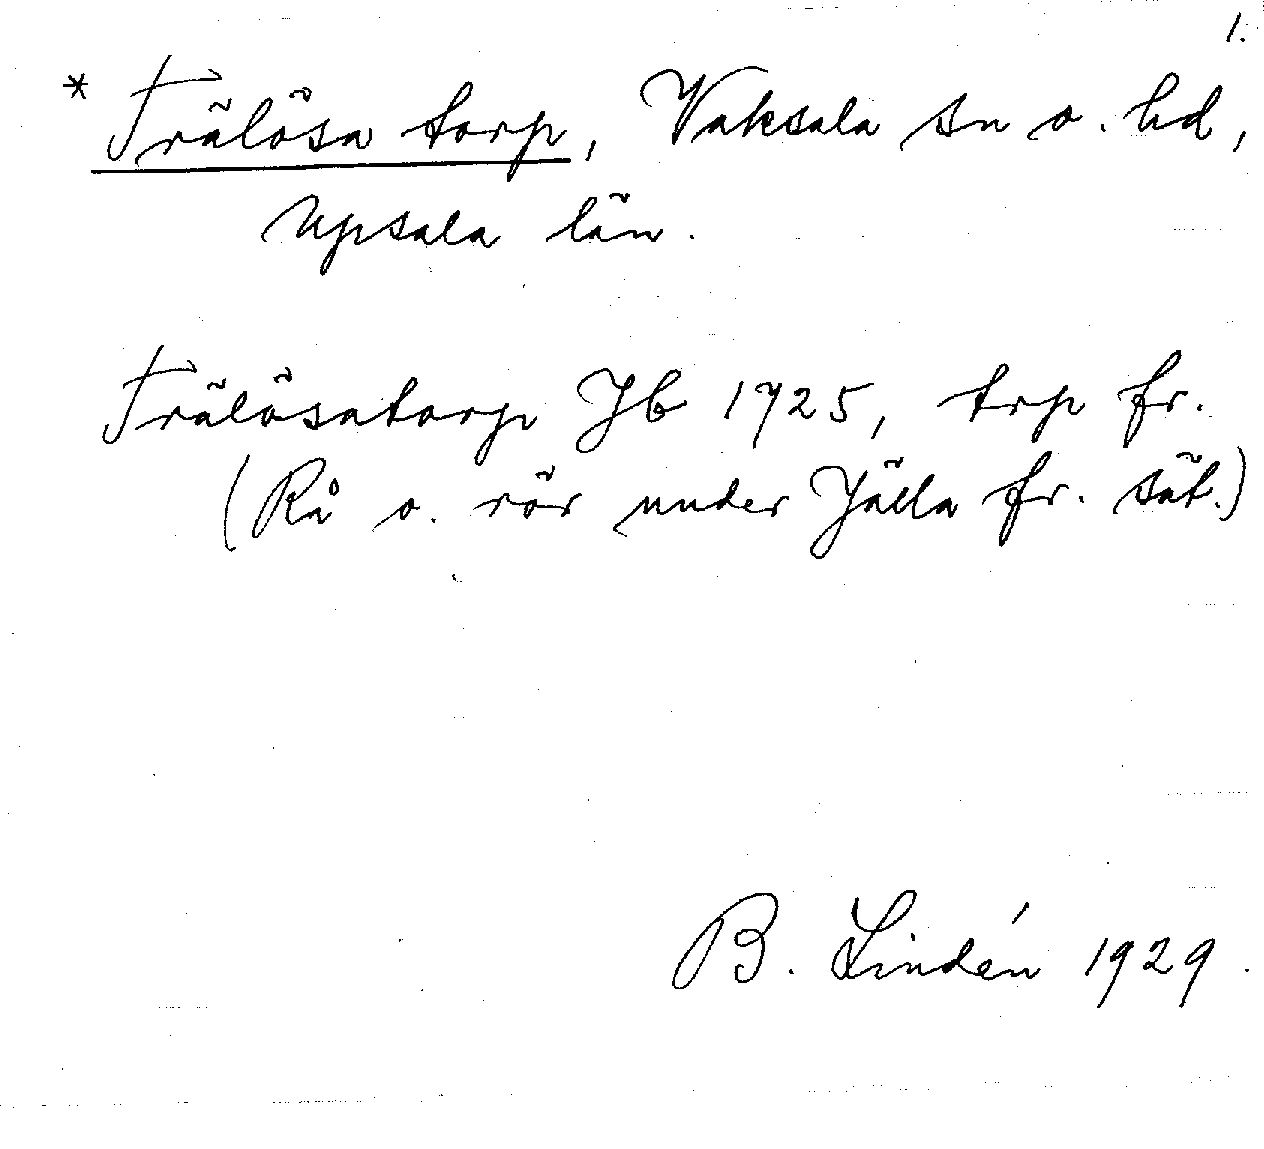 1.
* Trälösa torp, Vaksala sn o. hd,
Upsala län.
Trälösatorp Jb 1725, trp fr.
(Rå o. rör under Jälla fr. sät.)
B. Lindén 1929.